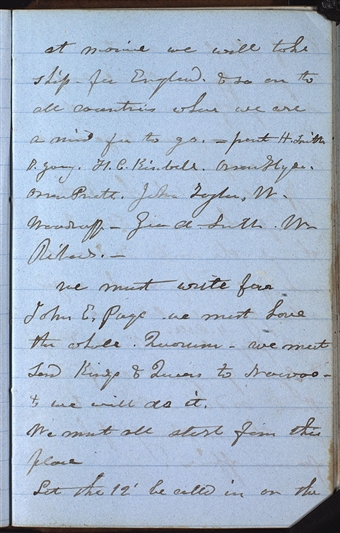 at maine we will take
ship. for England. & so on to
all countries where we are
a mind for to go. — prest H. Smith
B. Young. H. C. Kimball. Orson Hyde.
Orson Pratt. John Taylor, W.
Woodruff — Geo A. Smith. W.
Richards. —
we must write for
John E, Page we must have
the whole. Quorum — we must
send Kings & Queens to Nauvoo —
& we will do it.
We must all start from this
place
Let the 12 be called in on the